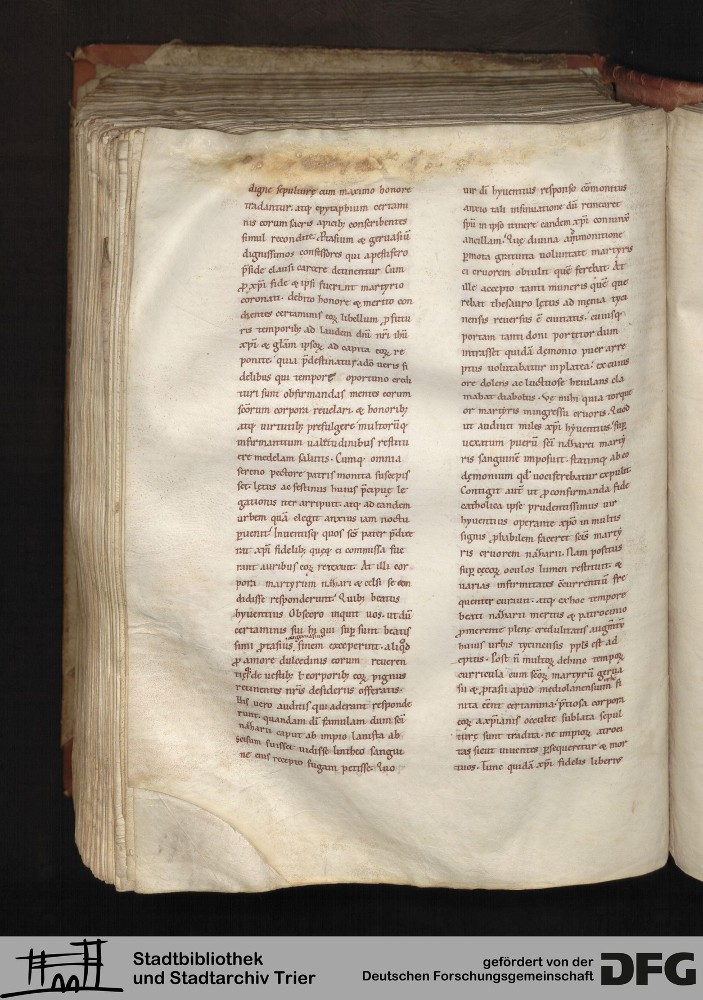 digne sepulturę cum maximo honore
tradantur. atq; epytaphium certami
nis eorum sacris apicib; conscribentes
simul recondite. Ꝓtasium & geruasiū
dignissimos confessores qui a pestifero
p̄side clausi carcere detinentur. Cum
ꝓ xp̄i fide & ipsi fuerint martyrio
coronati. debito honore & merito con
dientes certaminis eoꝝ libellum ꝓfutu
ris temporib; ad laudem dn̄i nr̄i ih̄u
xp̄i & gl̄am ipsoꝝ ad capita eoꝝ re
ponite. quia p̄destinatur a dō ueris fi
delibus qui tempore oportuno credi
turi sunt obfirmandas mentes eorum
sc̄orum corpora reuelari. & honorib;
atq; uirtutib; prefulgere multorūq;
infirmantium ualetudinibus restitu
ere medelam salutis. Cumq; omnia
sereno pectore patris monita suscepis
set. lętus ac festinus huius p̄cipuę le
gationis iter arripuit. atq; ad eandem
urbem quā elegit anxius iam noctu
ꝑuenit. Inuentisq; quos sc̄s pater p̄dixe
rat xp̄i fidelib; quęq; ei commissa fue
rant auribus eoꝝ retexuit. At illi cor
pora martyrum nazarii & celsi se con
didisse responderunt. Quib; beatus
hyuentius. Obsecro inquit uos. ut dū
certaminis sui hi qui sup̄ sunt beati
simi ꝓtasius finem exceperint. aliqd
ꝓ amore dulcedinis eorum reueren
tię de uestib; t corporib; eoꝝ pignus
retinentes nr̄is desideriis offeratis.
His uero auditis qui aderant responde
runt quandam dī famulam dum sc̄i
nazarii caput ab impio lanista ab
scisum fuisset uidisse linteo sangui
ne eius recepto fugam petisse. Quo
uir dī hyuentius responso cōmonitus
antio tali insinuatione dū remearet
sp̄u in ipso itinere eandem xp̄i conuenit
ancillam. Quę diuina āmonitione
ꝑmota gratuita uoluntate martyris
ei cruorem obtulit quē ferebat. At
ille accepto tanti muneris quē que
rebat thesauro lętus ad męnia tyci
nensis reuersus ē ciuitatis. cuiusq;
portam tanti doni portitor dum
intrasset quidā dęmonio puer arre
ptus uolutabatur in platea. ex cuius
ore dolens ac luctuose heiulans cla
mabat diabolus. Vę mihi quia torque
or martyris in ingressu cruoris. Quod
ut audiuit miles xp̄i hyuentius. sup̄
uexatum puerū sc̄i nazarii marty
ris sanguinē imposuit. statimq; ab eo
dęmonium qd̄ uociferebatur expulit.
Contigit autē ut ꝓ confirmanda fide
catholica ipse prudentissimus uir
hyuentius operante xp̄o in multis
signis ꝓbabilem faceret sc̄is marty
ris cruorem nazarii. Nam positus
sup̄ cęcoꝝ oculos lumen restituit. &
uarias infirmitates occurrentiū fre
quenter curauit. atq; ex hoc tempore
beati nazarii meritis & patrocinio
ꝓmerente plenę credulitatis augm̄tū
huius urbis tycinensis ppl̄s est ad
eptus. Post n̄ multoꝝ dehinc tempoꝝ
curricula cum sc̄oꝝ martyrū gerua
sii & ꝓtasii apud mediolanensium fi
nita eēnt certamina. p̄tiosa corpora
eoꝝ a xp̄ianis occulte sublata sepul
turę sunt tradita. ne impioꝝ atroci
tas sicut uiuentes ꝑsequeretur & mor
tuos. Tunc quidā xp̄i fidelis liberis
Stadtbibliothek
und Stadtarchiv Trier
gefördert von der
Deutschen Forschungsgemeinschaft
DFG